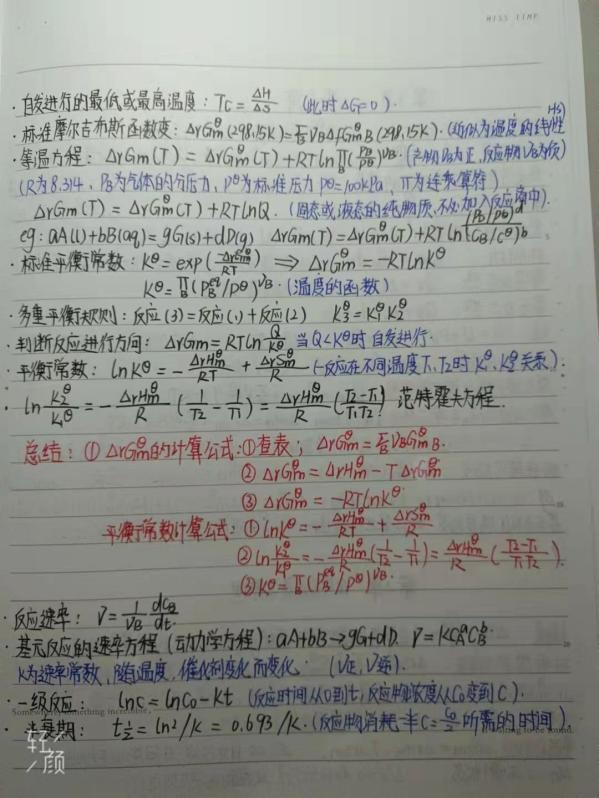 MISS TIME
· 自发进行的最低或最高温度：Tc = ΔH/ΔS （此时ΔG=0）.
· 标准摩尔吉布斯函数变：ΔrGm^θ(298.15K) = Σ_B νB ΔfGm^θ B (298.15K).
· 等温方程：ΔrGm(T) = ΔrGm^θ(T) + RTln Π_B (PB/P^θ)^νB. (产物νB为正,反应物νB为负)
(R为8.314, PB为气体的分压力, P^θ为标准压力 P^θ=100kPa, Π为连乘算符)
ΔrGm(T) = ΔrGm^θ(T) + RTlnQ. (固态或液态的纯物质,不必加入反应商中).
eg: aA(l)+bB(aq)=gG(s)+dD(g) ΔrGm(T) = ΔrGm^θ(T) + RTln (PD/P^θ)^d/(CB/C^θ)^b
· 标准平衡常数：K^θ = exp(-ΔrGm^θ/RT) ⟹ ΔrGm^θ = -RTlnK^θ
K^θ = Π_B (PB^eq/P^θ)^νB. (温度的函数)
· 多重平衡规则：反应(3)=反应(1)+反应(2) K3^θ=K1^θK2^θ
· 判断反应进行方向：ΔrGm=RTln Q/K^θ 当Q<K^θ时自发进行.
· 平衡常数：lnK^θ = -ΔrHm^θ/RT + ΔrSm^θ/R (一反应在不同温度T1、T2时K1^θ、K2^θ关系)：
· ln K2^θ/K1^θ = -ΔrHm^θ/R (1/T2 - 1/T1) = ΔrHm^θ/R (T2-T1/T1T2) 范特霍夫方程.
总结：① ΔrGm^θ的计算公式：①查表；ΔrGm^θ = Σ_B νBGm^θ B.
② ΔrGm^θ = ΔrHm^θ - TΔrGm^θ
③ ΔrGm^θ = -RTlnK^θ.
平衡常数计算公式：① lnK^θ = -ΔrHm^θ/RT + ΔrSm^θ/R
② ln K2^θ/K1^θ = -ΔrHm^θ/R (1/T2 - 1/T1) = ΔrHm^θ/R (T2-T1/T1T2).
③ K^θ = Π_B (PB^eq/P^θ)^νB.
· 反应速率：V = 1/νB dCB/dt.
· 基元反应的速率方程（动力学方程）：aA+bB→gG+dD. V=KCA^aCB^b.
K为速率常数，随温度、催化剂变化而变化. (V正,V逆).
· 一级反应： lnC = lnC0 - Kt (反应时间从0到t,反应物浓度从C0变到C).
· 半衰期： t½ = ln2/K = 0.693/K. (反应物消耗一半C=C0/2所需的时间).
轻颜